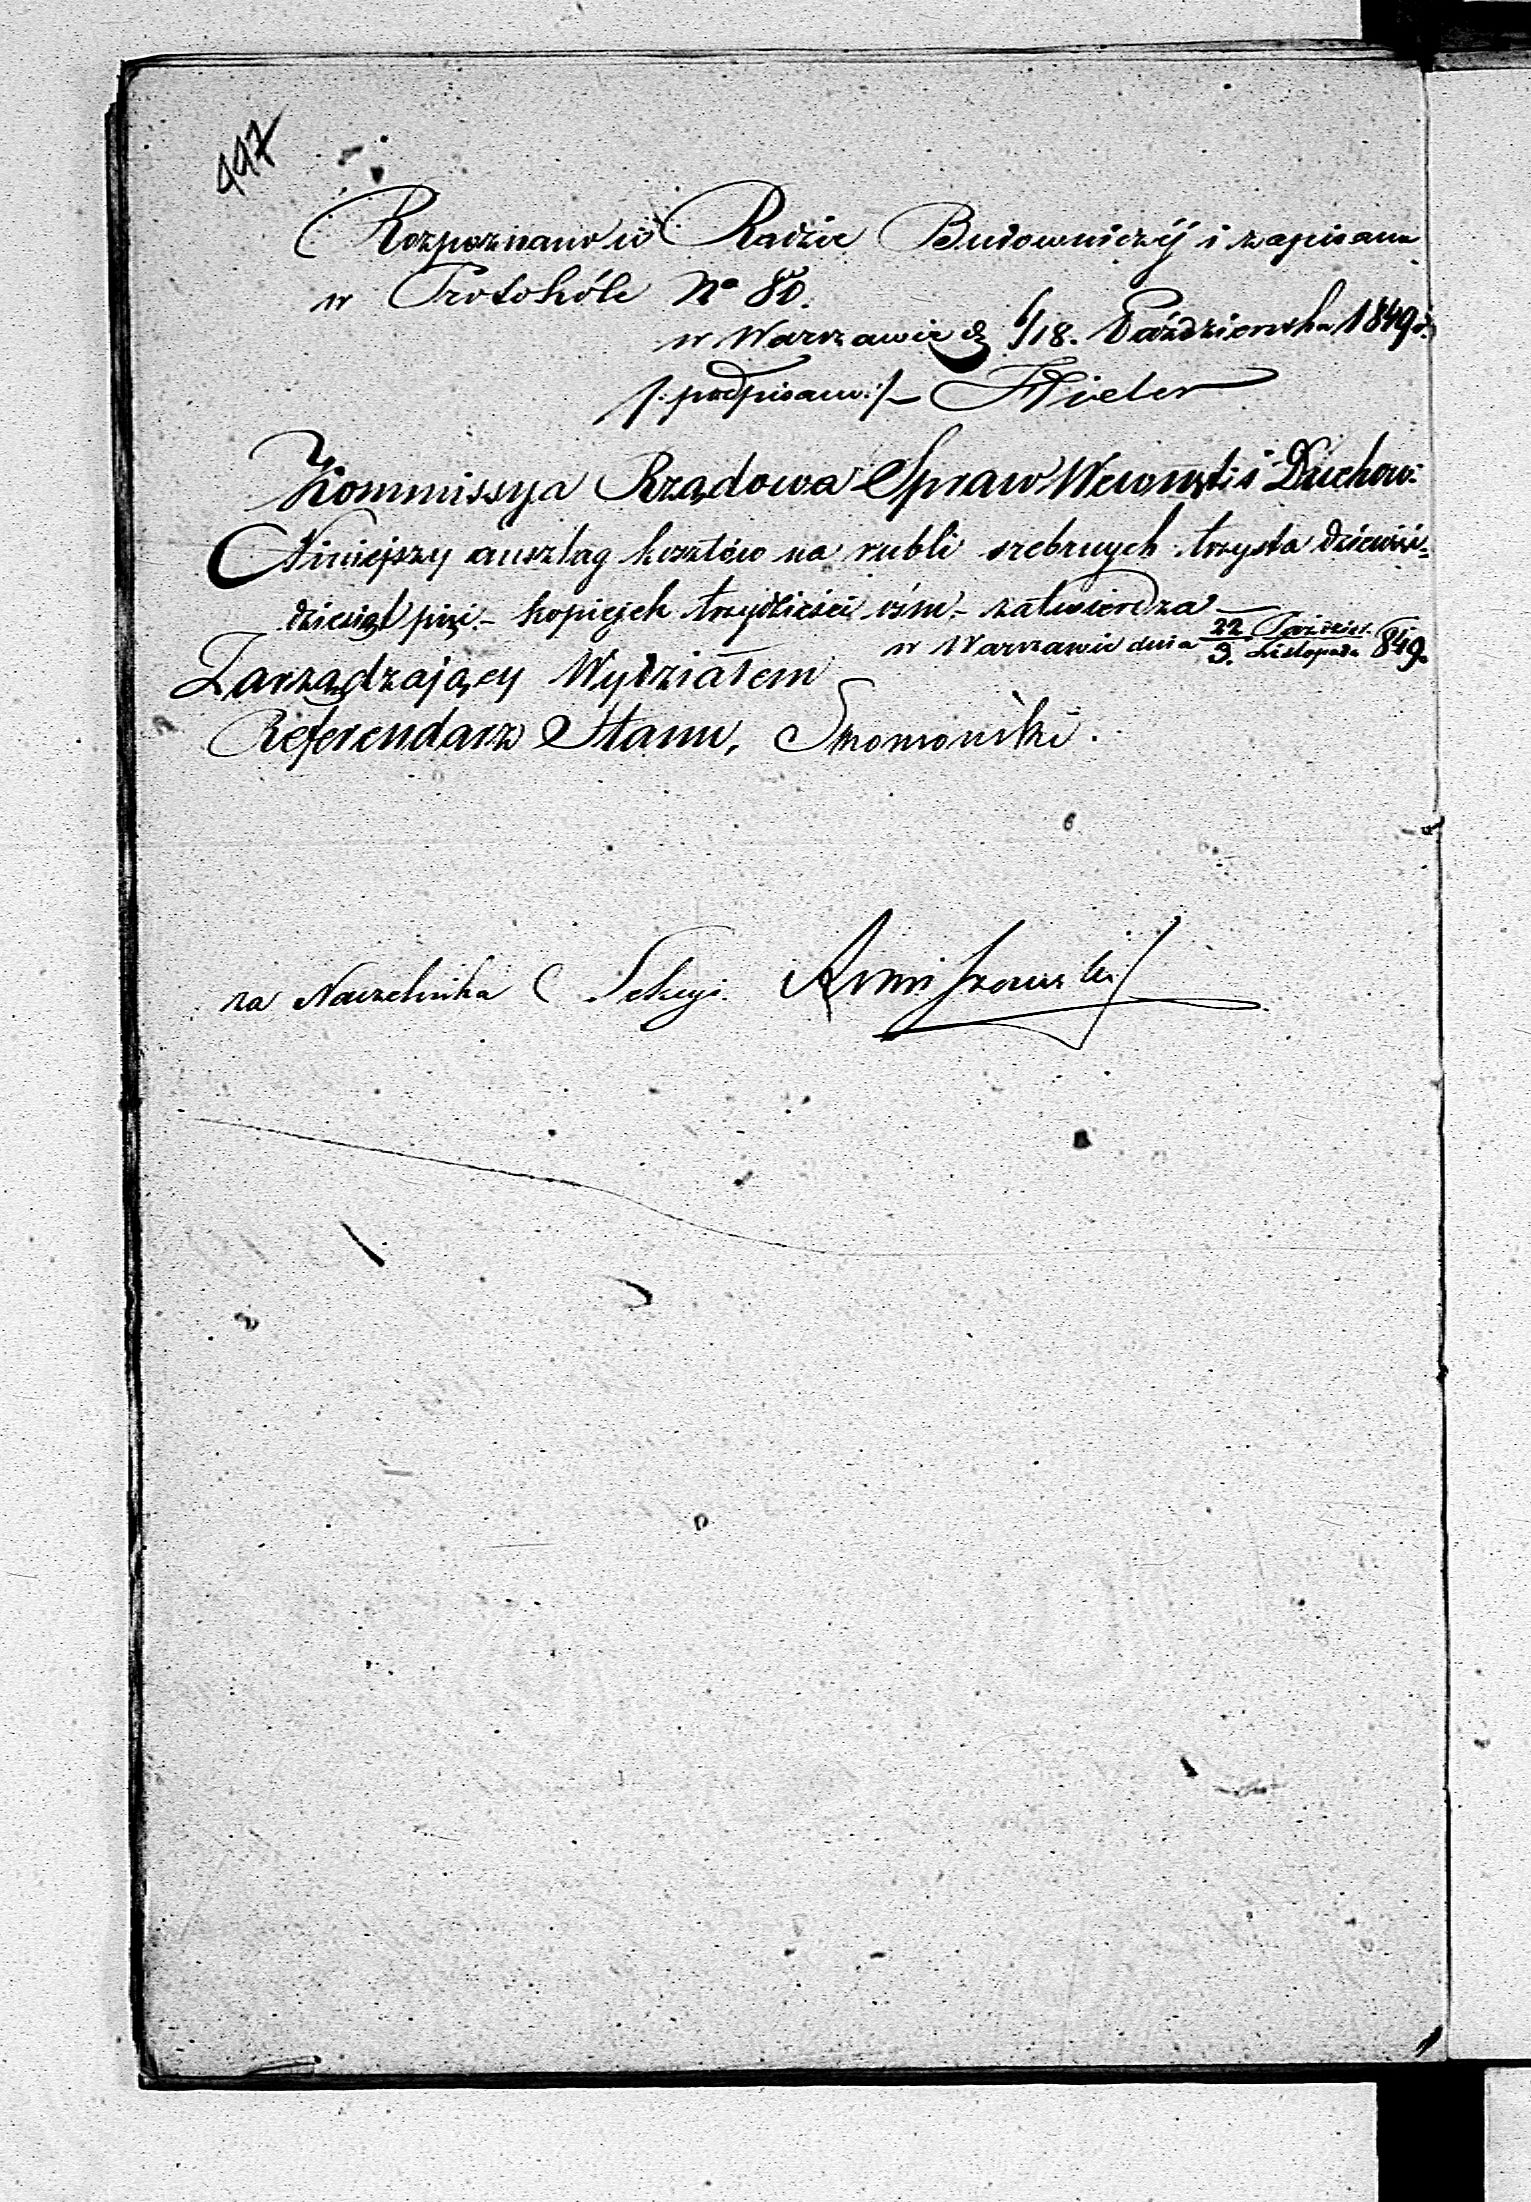 447
Rozpoznano w Radzie Budowniczéj i zapisano
w Protokóle No 80.
w Warszawie d. 6/18. Października 1849 r.
/: podpisano :/
Kommissya Rządowa Spraw Wewnęt: i Duchow:
Niniejszy anszlag kosztów na rubli srebrnych trzysta dziewięć-
dziesiąt pięć - kopiejek trzydzieści ośm - zatwierdza
w Warszawie dnia 22 Paździer. / 3. Listopada 849.
Zarządzający Wydziałem
Referendarz Stanu,
za Naczelnika Sekcyi.